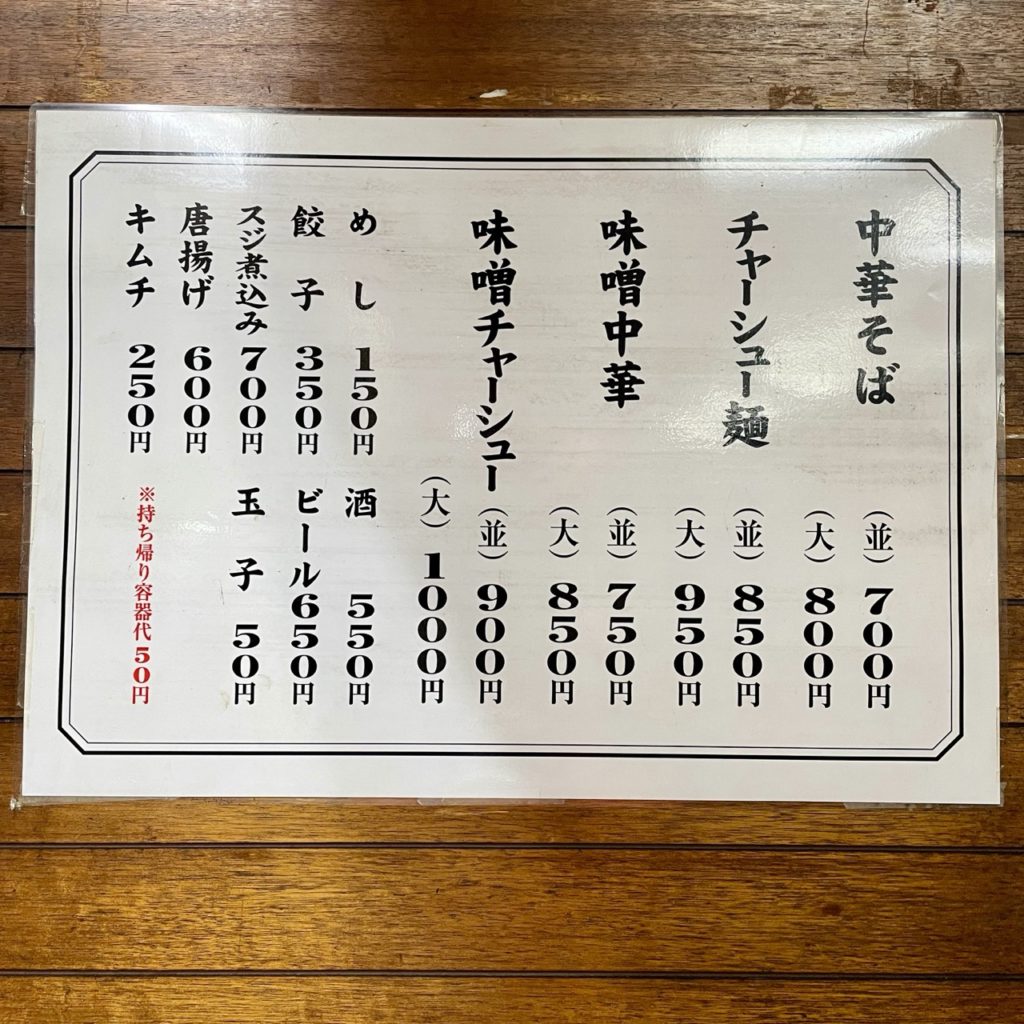 中華そば (並) 700円
(大) 800円
チャーシュー麺 (並) 850円
(大) 950円
味噌中華 (並) 750円
(大) 850円
味噌チャーシュー (並) 900円
(大) 1000円
めし 150円
酒 550円
餃子 350円
ビール 650円
スジ煮込み 700円
玉子 50円
唐揚げ 600円
キムチ 250円
※持ち帰り容器代 50円